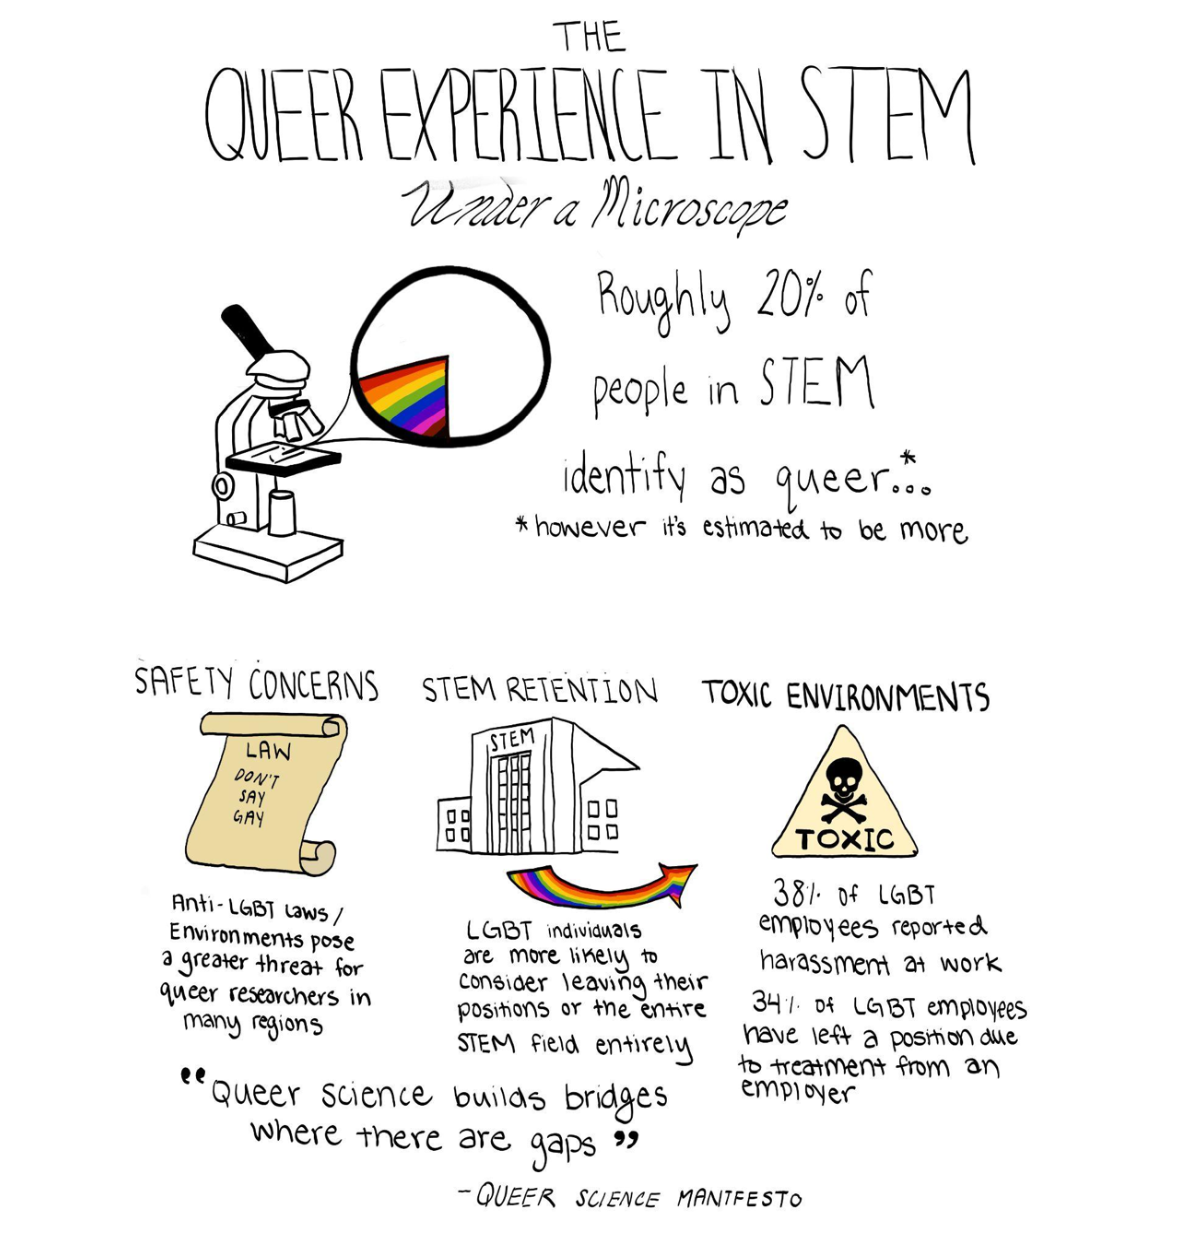 THE
QUEER EXPERIENCE IN STEM
Under a Microscope
Roughly 20% of
people in STEM
identify as queer...*
*however it's estimated to be more
SAFETY CONCERNS
LAW
DON'T
SAY
GAY
Anti-LGBT Laws/
Environments pose
a greater threat for
queer researchers in
many regions
STEM RETENTION
STEM
LGBT individuals
are more likely to
consider leaving their
positions or the entire
STEM field entirely
TOXIC ENVIRONMENTS
TOXIC
38% of LGBT
employees reported
harassment at work
34% of LGBT employees
have left a position due
to treatment from an
employer
"Queer science builds bridges
where there are gaps"
-QUEER SCIENCE MANIFESTO